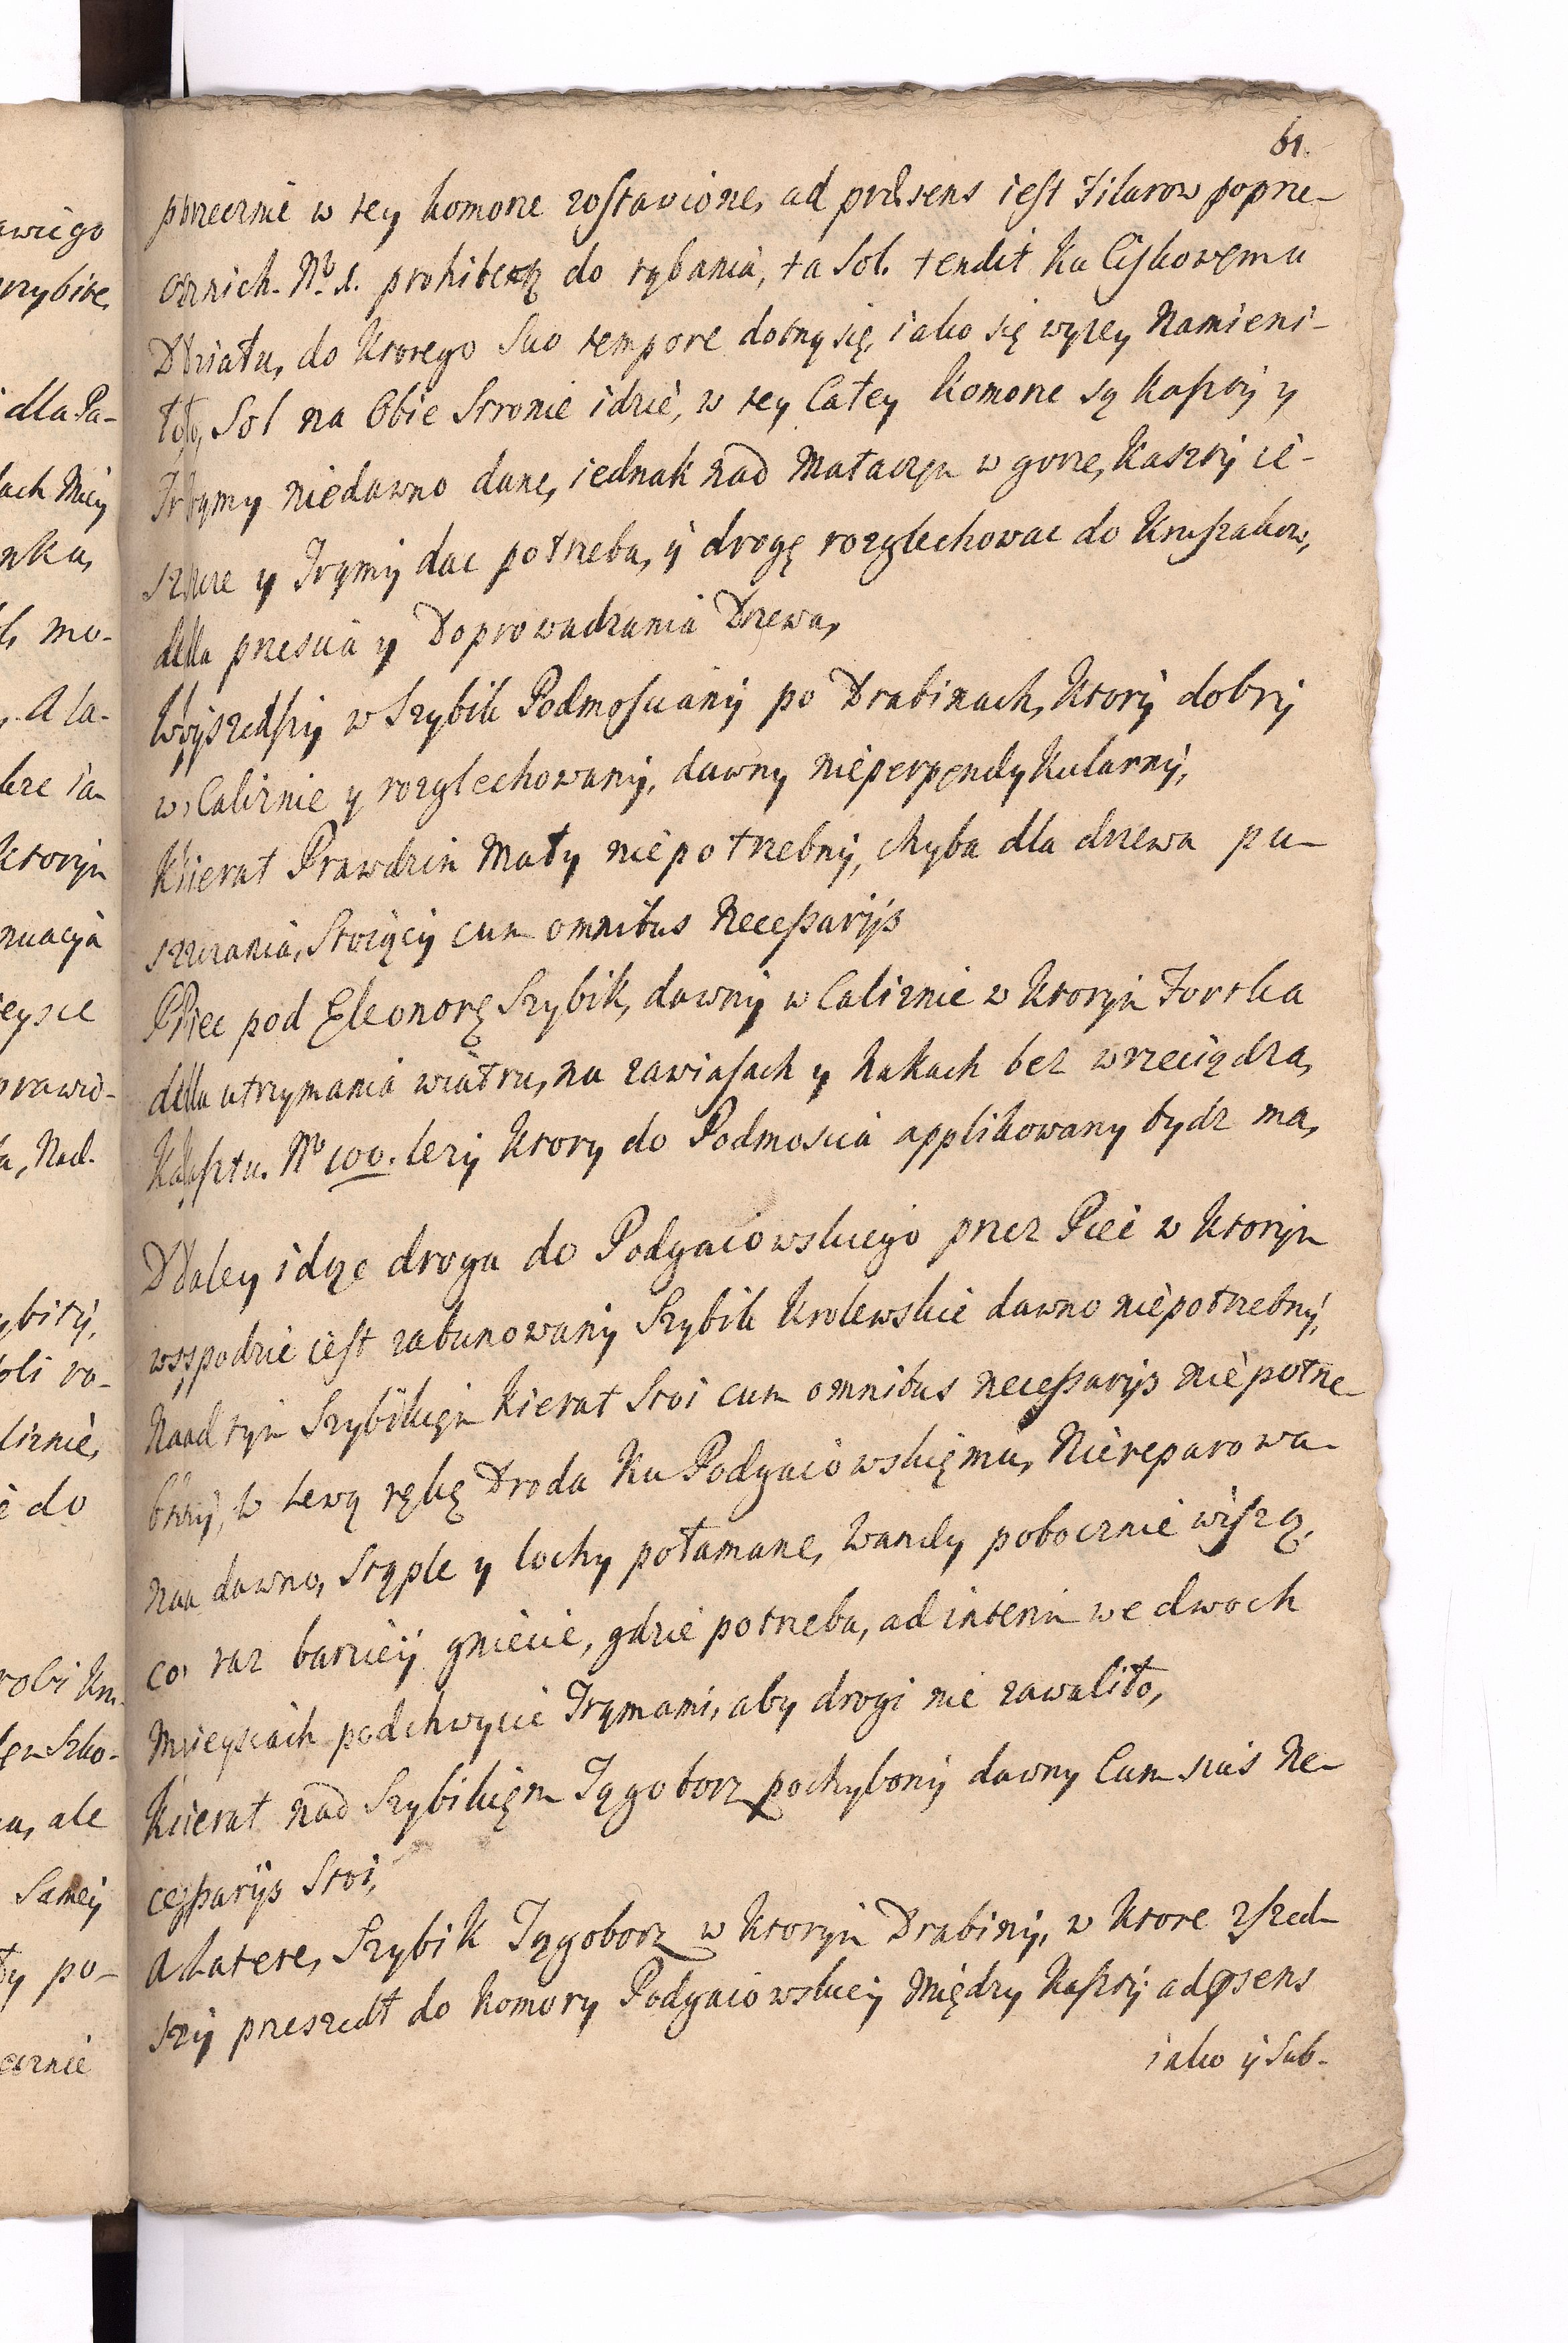 61.
poprzecznie w tey komorze zostawione, ad praesens iest Filarow poprze-
cznich. No. 8. prohibeą do rąbania, ta Sol. tendit ku Ciskowęmu
Działu, do Ktorego Suo tempore dotny się, iako się wyzey Namieni-
ło, Sol na Obie Stronie idzie, w tey Całey Komorze są Kaszty y
Trąmy niedawno dane, iednak nad Małaczęn w gorze, Kaszty ie-
szcze y Trąmy dac potrzeba, y drogę rozglechowac do Kruszakow,
dla przescia y Doprowadzania Drzewa,
Wyszedszy w Szybik Podmoscany po Drabinach, Ktory dobry
w Caliznie y rozglechowany, dawny nieperpęndykularny,
Kierat Prawdzin Mały niepotrzebny, chyba dla drzewa pu-
szczania, Stoiący cum omnibus Necessarijs
Piec pod Eleonorę Szybik, dawny w Caliznie w Ktorym Fortka
dla utrzymania wiatru, na zawiasach y hakach bez wrzeciądza,
Kasztu. No 100. lezy Ktory do Podmoscia applikowany bydz ma,
Daley idąc droga do Podgaiowskiego przez Piec w Ktorym
wspodzie iest zabunowany Szybik Krolewskie dawno niepotrzebny,
Nad tym Szybikięm Kierat Stoi cum omnibus necessarijs niepotrze-
bny, w Lewą rękę Droda Ku Podgaiowskięmu, Niereparowa-
na dawno, Stąple y lochy połamane, Wandy pobocznie wiszą,
co raz barziey gniecie, gdzie potrzeba, ad interim we dwoch
Mieyscach podchwycic Trąmami, aby drogi nie zawaliło,
Kierat nad Szybikięm Tągoborz pochybony dawny Cum suis Ne-
cessarijs Stoi,
A Latere, Szybik Tągoborz w Ktorym Drabiny, w Ktore zszed-
szy przeszedł do Komory Podgaiowskiey Między Kaszty ad psens
iako y Sub-